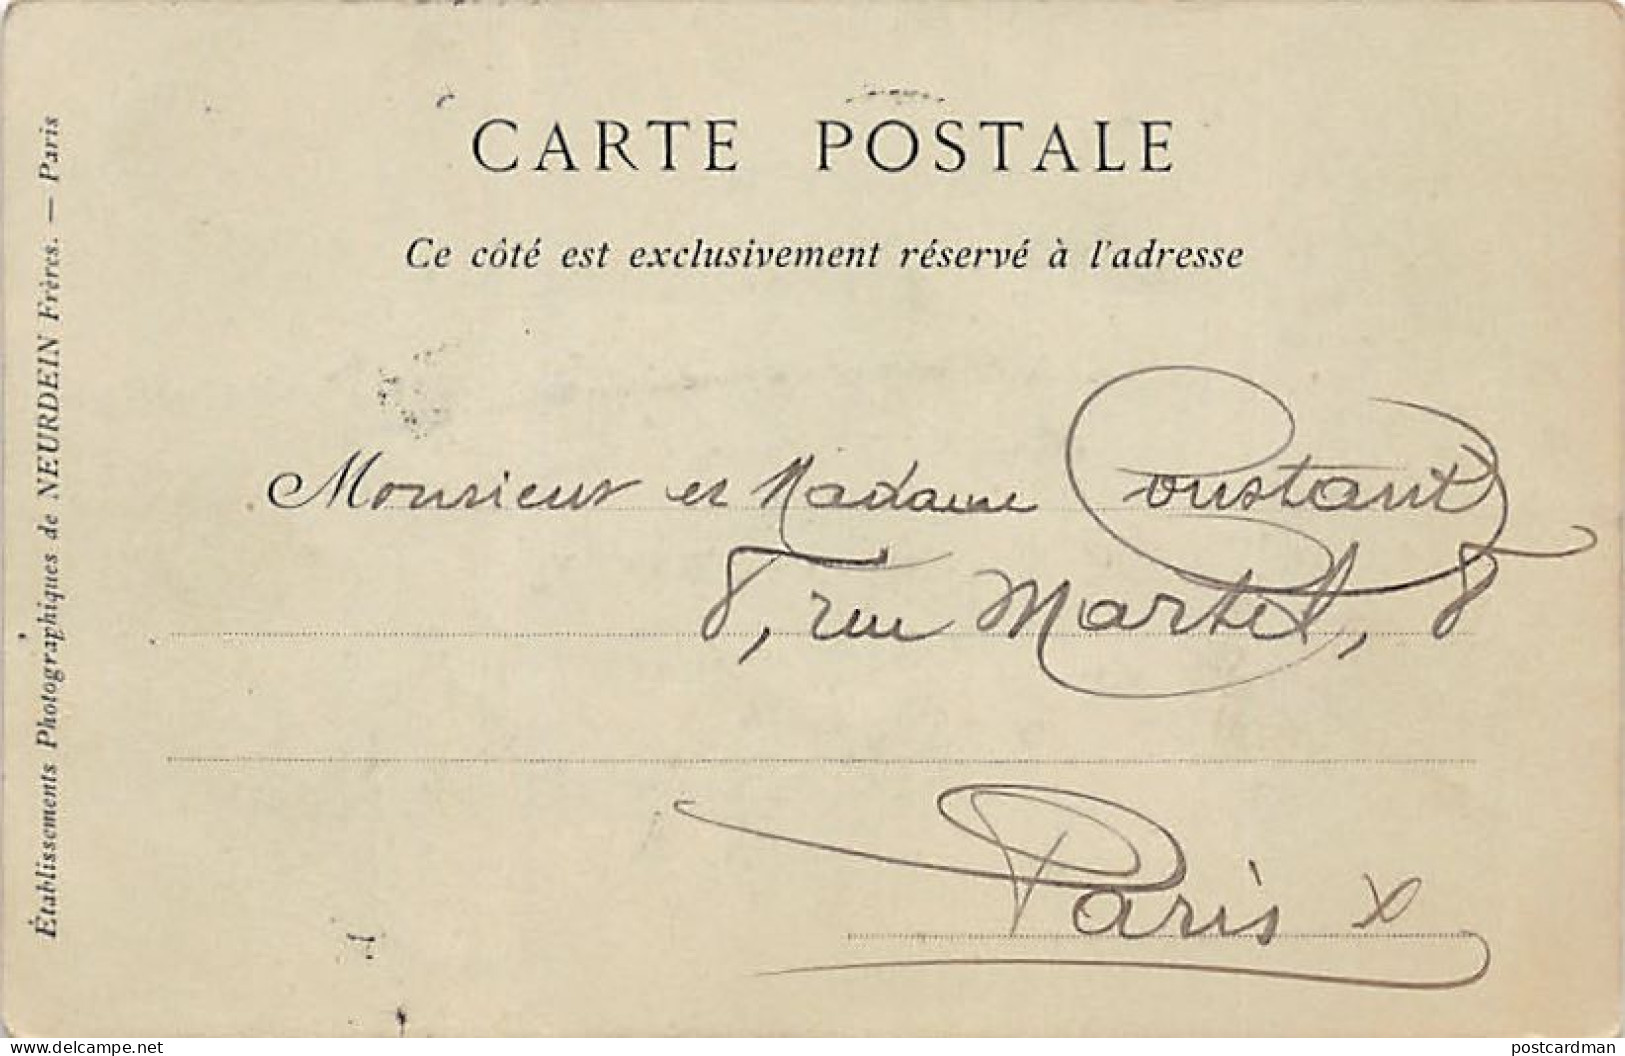 CARTE POSTALE
Ce côté est exclusivement réservé à l'adresse
Monsieur et Madame Constant
8, rue Martel, 8
Paris X
Établissements Photographiques de NEURDEIN Frères. — Paris
www.delcampe.net
postcardman